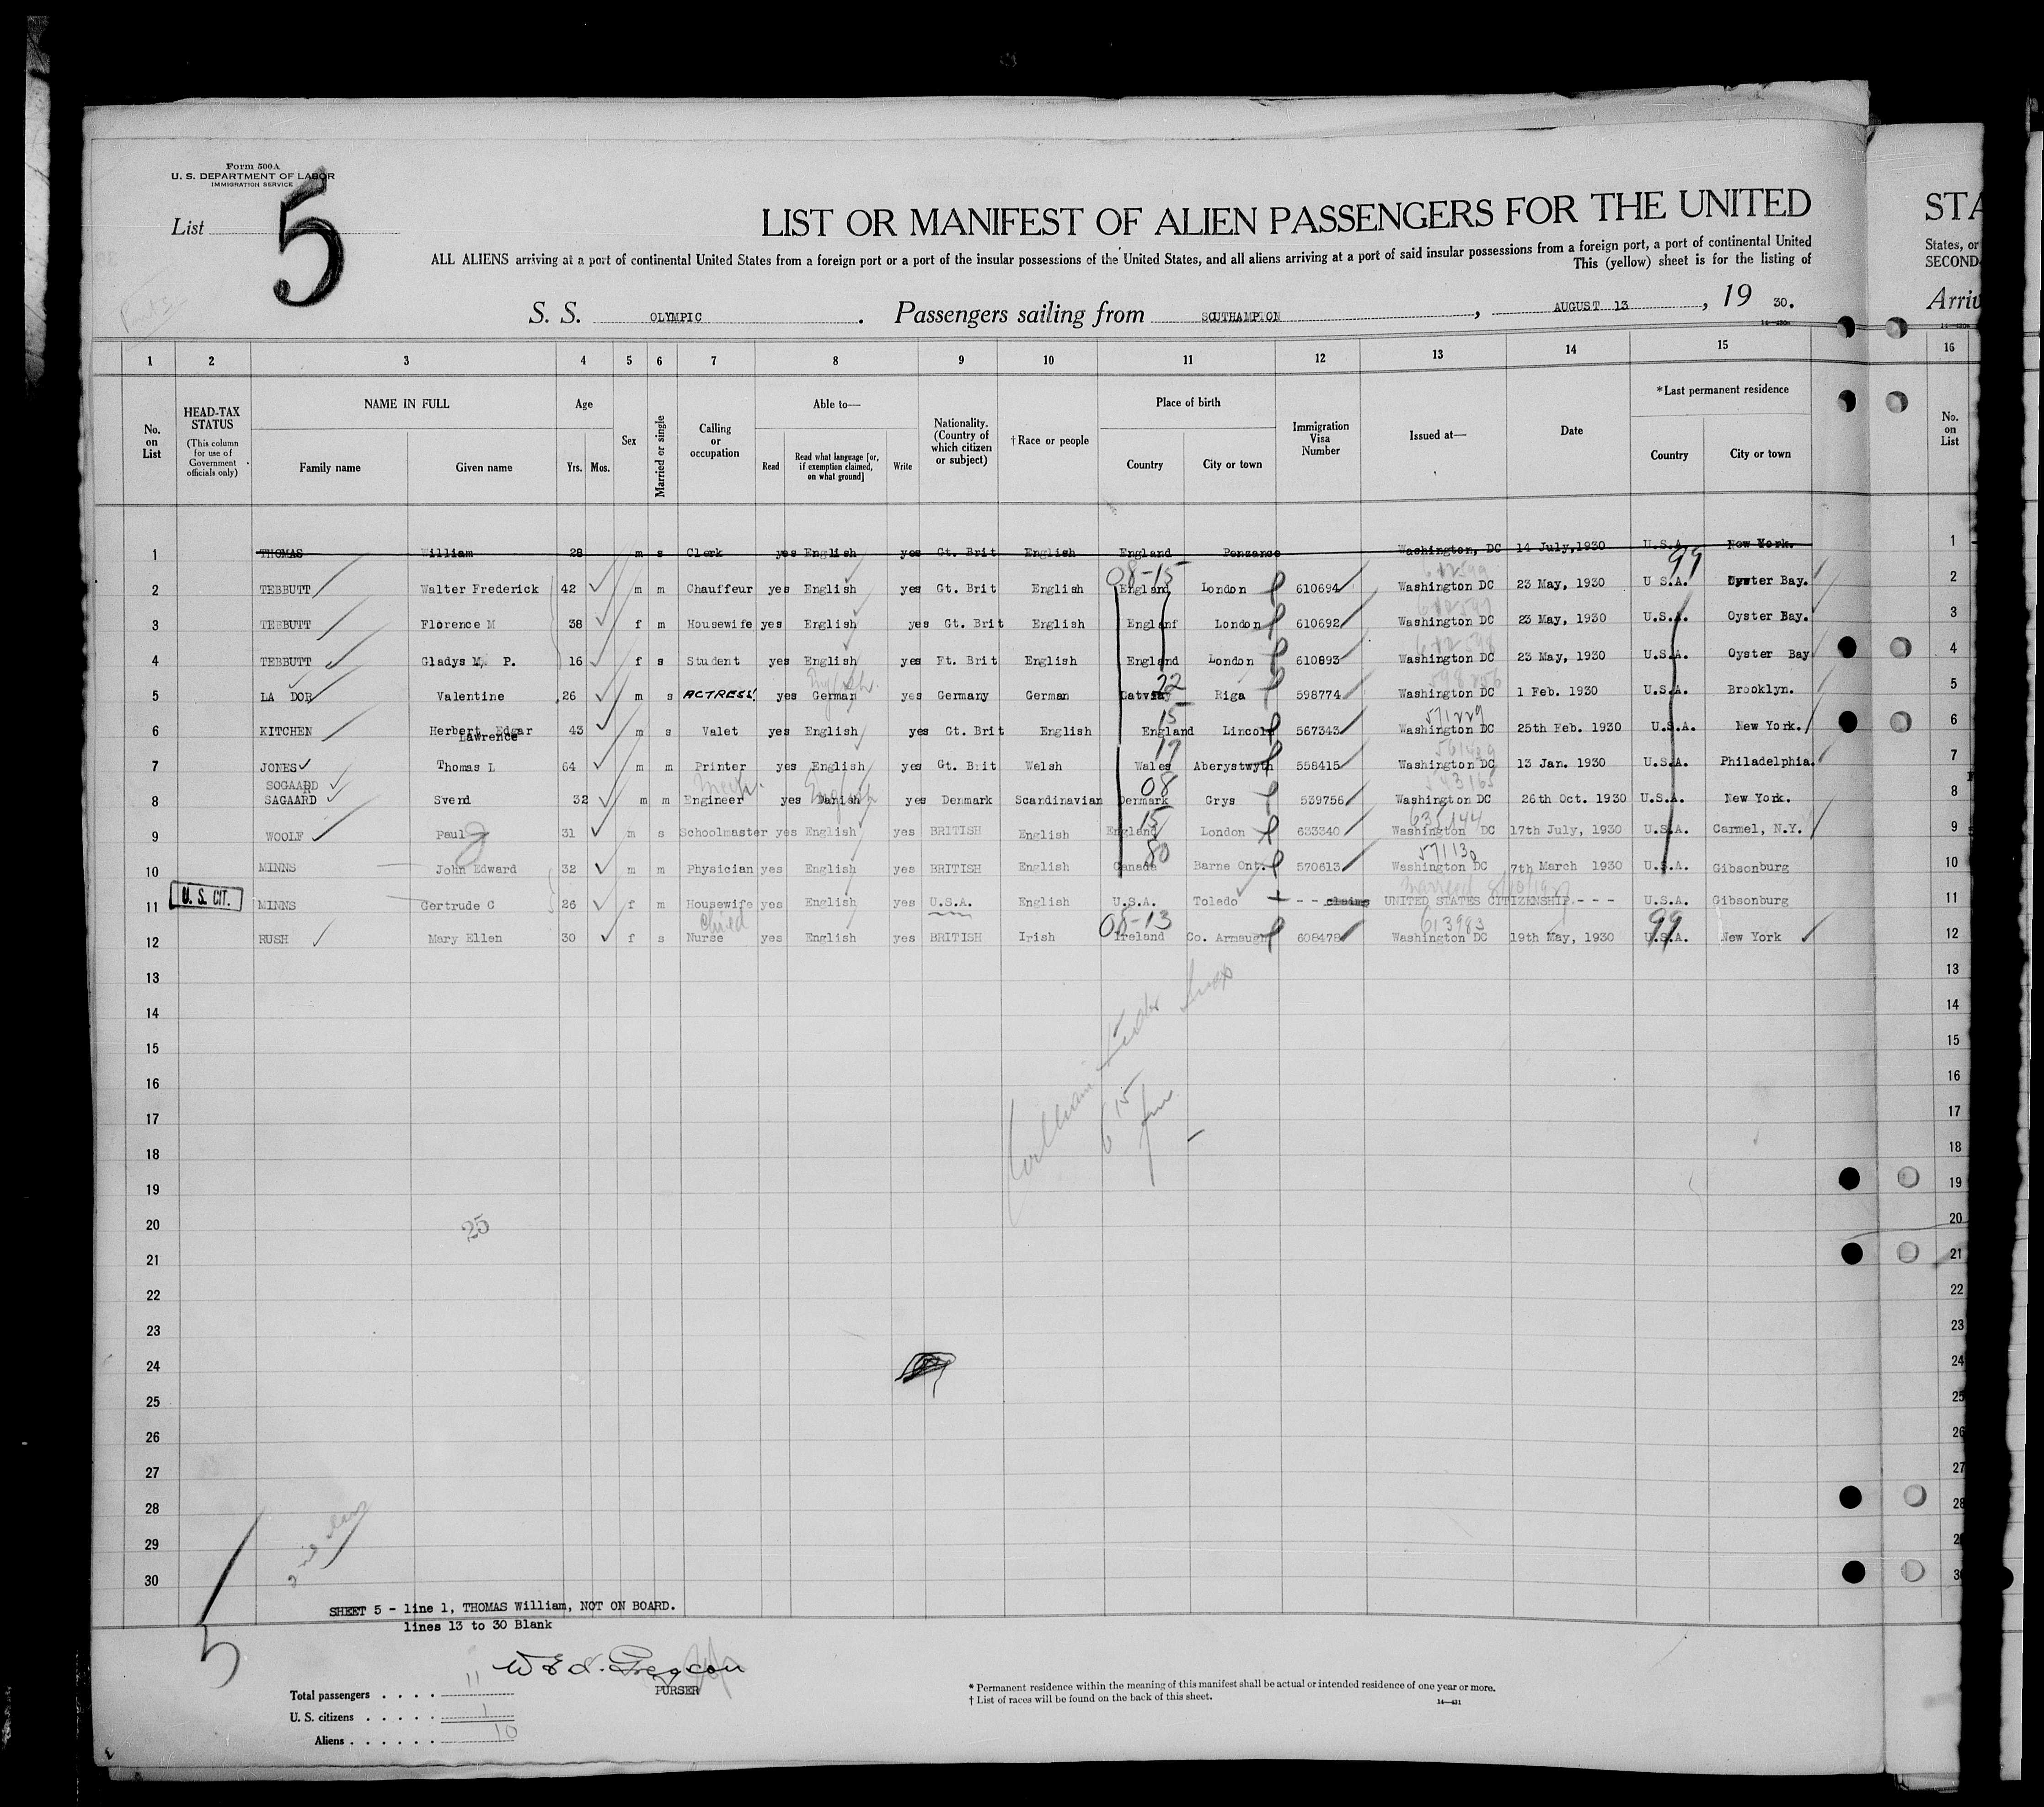 Form 500A
U. S. DEPARTMENT OF LABOR
IMMIGRATION SERVICE
List 5
LIST OR MANIFEST OF ALIEN PASSENGERS FOR THE UNITED
STA
ALL ALIENS arriving at a port of continental United States from a foreign port or a port of the insular possessions of the United States, and all aliens arriving at a port of said insular possessions from a foreign port, a port of continental United
States, or
This (yellow) sheet is for the listing of
SECOND-
S. S. OLYMPIC. Passengers sailing from SOUTHAMPTON, AUGUST 13, 19 30.
Arriv
1 2 3 4 5 6 7 8 9 10 11 12 13 14 15 16
No. on List
HEAD-TAX STATUS
(This column for use of Government officials only)
NAME IN FULL
Family name Given name
Age
Yrs. Mos.
Sex
Married or single
Calling or occupation
Able to—
Read
Read what language [or, if exemption claimed, on what ground]
Write
Nationality. (Country of which citizen or subject)
† Race or people
Place of birth
Country City or town
Immigration Visa Number
Issued at—
Date
* Last permanent residence
Country City or town
No. on List
1 THOMAS William 28 m s Clerk yes English yes Gt. Brit English England Penzance Washington, DC 14 July, 1930 U.S.A. New York. 1
08-15 612599 99
2 TEBBUTT Walter Frederick 42 m m Chauffeur yes English yes Gt. Brit English England London 610694 Washington DC 23 May, 1930 U S.A. Oyster Bay. 2
612597
3 TEBBUTT Florence M 38 f m Housewife yes English yes Gt. Brit English Englanf London 610692 Washington DC 23 May, 1930 U.S.A. Oyster Bay. 3
612598
4 TEBBUTT Gladys M. P. 16 f s Student yes English yes Ft. Brit English England London 610693 Washington DC 23 May, 1930 U.S.A. Oyster Bay 4
English 22
5 LA DOR Valentine 26 m s ACTRESS yes German yes Germany German Latvia Riga 598774 Washington DC 1 Feb. 1930 U.S.A. Brooklyn. 5
15 571229
6 KITCHEN Herbert Edgar 43 m s Valet yes English yes Gt. Brit English England Lincoln 567343 Washington DC 25th Feb. 1930 U.S.A. New York. 6
Lawrence 17
7 JONES Thomas L 64 m m Printer yes English yes Gt. Brit Welsh Wales Aberystwyth 558415 Washington DC 13 Jan. 1930 U.S.A. Philadelphia. 7
SOGAARD Mech. English 08 543165
8 SAGAARD Svend 32 m m Engineer yes Danish yes Denmark Scandinavian Denmark Grys 539756 Washington DC 26th Oct. 1930 U.S.A. New York. 8
15 635144
9 WOOLF Paul 31 m s Schoolmaster yes English yes BRITISH English England London 633340 Washington DC 17th July, 1930 U.S.A. Carmel, N.Y. 9
80 571130
10 MINNS John Edward 32 m m Physician yes English yes BRITISH English Canada Barne Ont. 570613 Washington DC 7th March 1930 U.S.A. Gibsonburg 10
Married
11 U. S. CIT. MINNS Gertrude C 26 f m Housewife yes English yes U.S.A. English U.S.A. Toledo - - claims UNITED STATES CITIZENSHIP. - - - U.S.A. Gibsonburg 11
Child 08-13 613983 99
12 RUSH Mary Ellen 30 f s Nurse yes English yes BRITISH Irish Ireland Co. Armaugh 608478 Washington DC 19th May, 1930 U.S.A. New York 12
13 13
14 14
15 15
16 16
17 17
18 18
19 19
20 25 20
21 21
22 22
23 23
24 24
25 25
26 26
27 27
28 28
29 29
30 30
SHEET 5 - line 1, THOMAS William, NOT ON BOARD.
lines 13 to 30 Blank
5
PURSER
Total passengers . . . . 11
U. S. citizens . . . . . 1
Aliens . . . . . . 10
* Permanent residence within the meaning of this manifest shall be actual or intended residence of one year or more.
† List of races will be found on the back of this sheet.
14—421